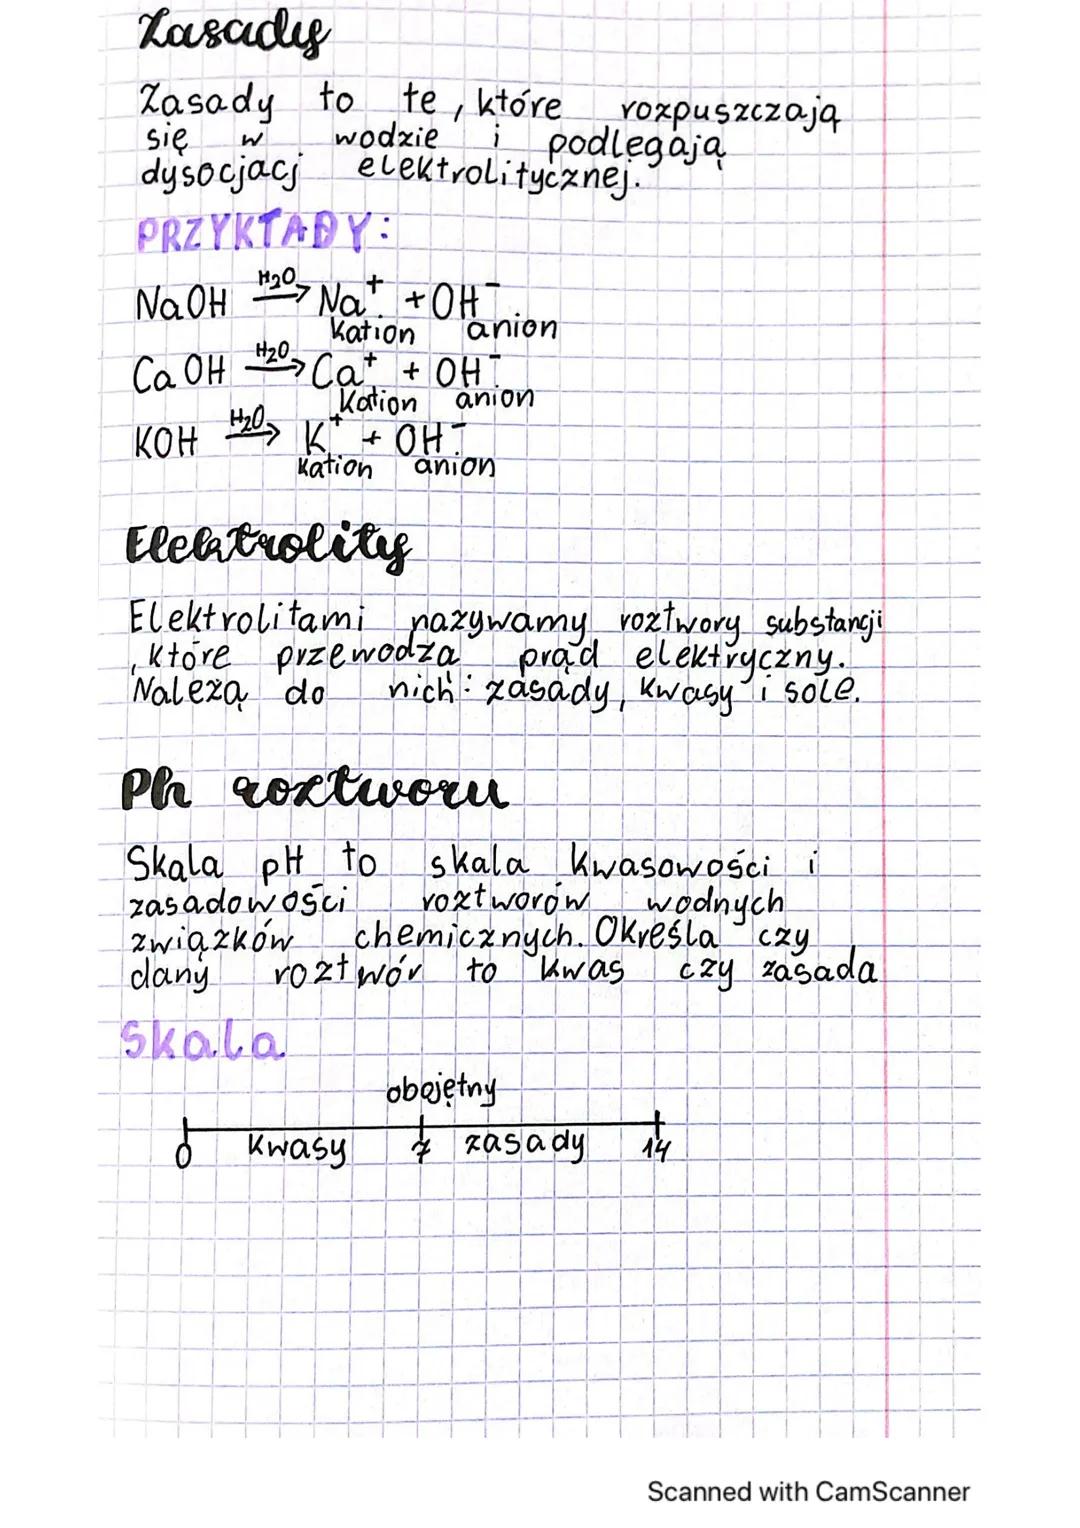 Zasady
Zasady to te, które rozpuszczają
się w wodzie i podlegają
dysocjacj elektrolitycznej.
PRZYKŁADY:
NaOH H2O→ Na⁺ + OH⁻
kation anion
CaOH H2O→ Ca⁺ + OH⁻
kation anion
KOH H2O→ K⁺ + OH⁻
kation anion
Elektrolity
Elektrolitami nazywamy roztwory substancji
, które przewodzą prąd elektryczny.
Należą do nich: zasady, kwasy i sole.
Ph roztworu
Skala pH to skala kwasowości i
zasadowości roztworów wodnych
związków chemicznych. Określa czy
dany roztwór to kwas czy zasada
Skala
obojętny
0 kwasy 7 zasady 14
Scanned with CamScanner